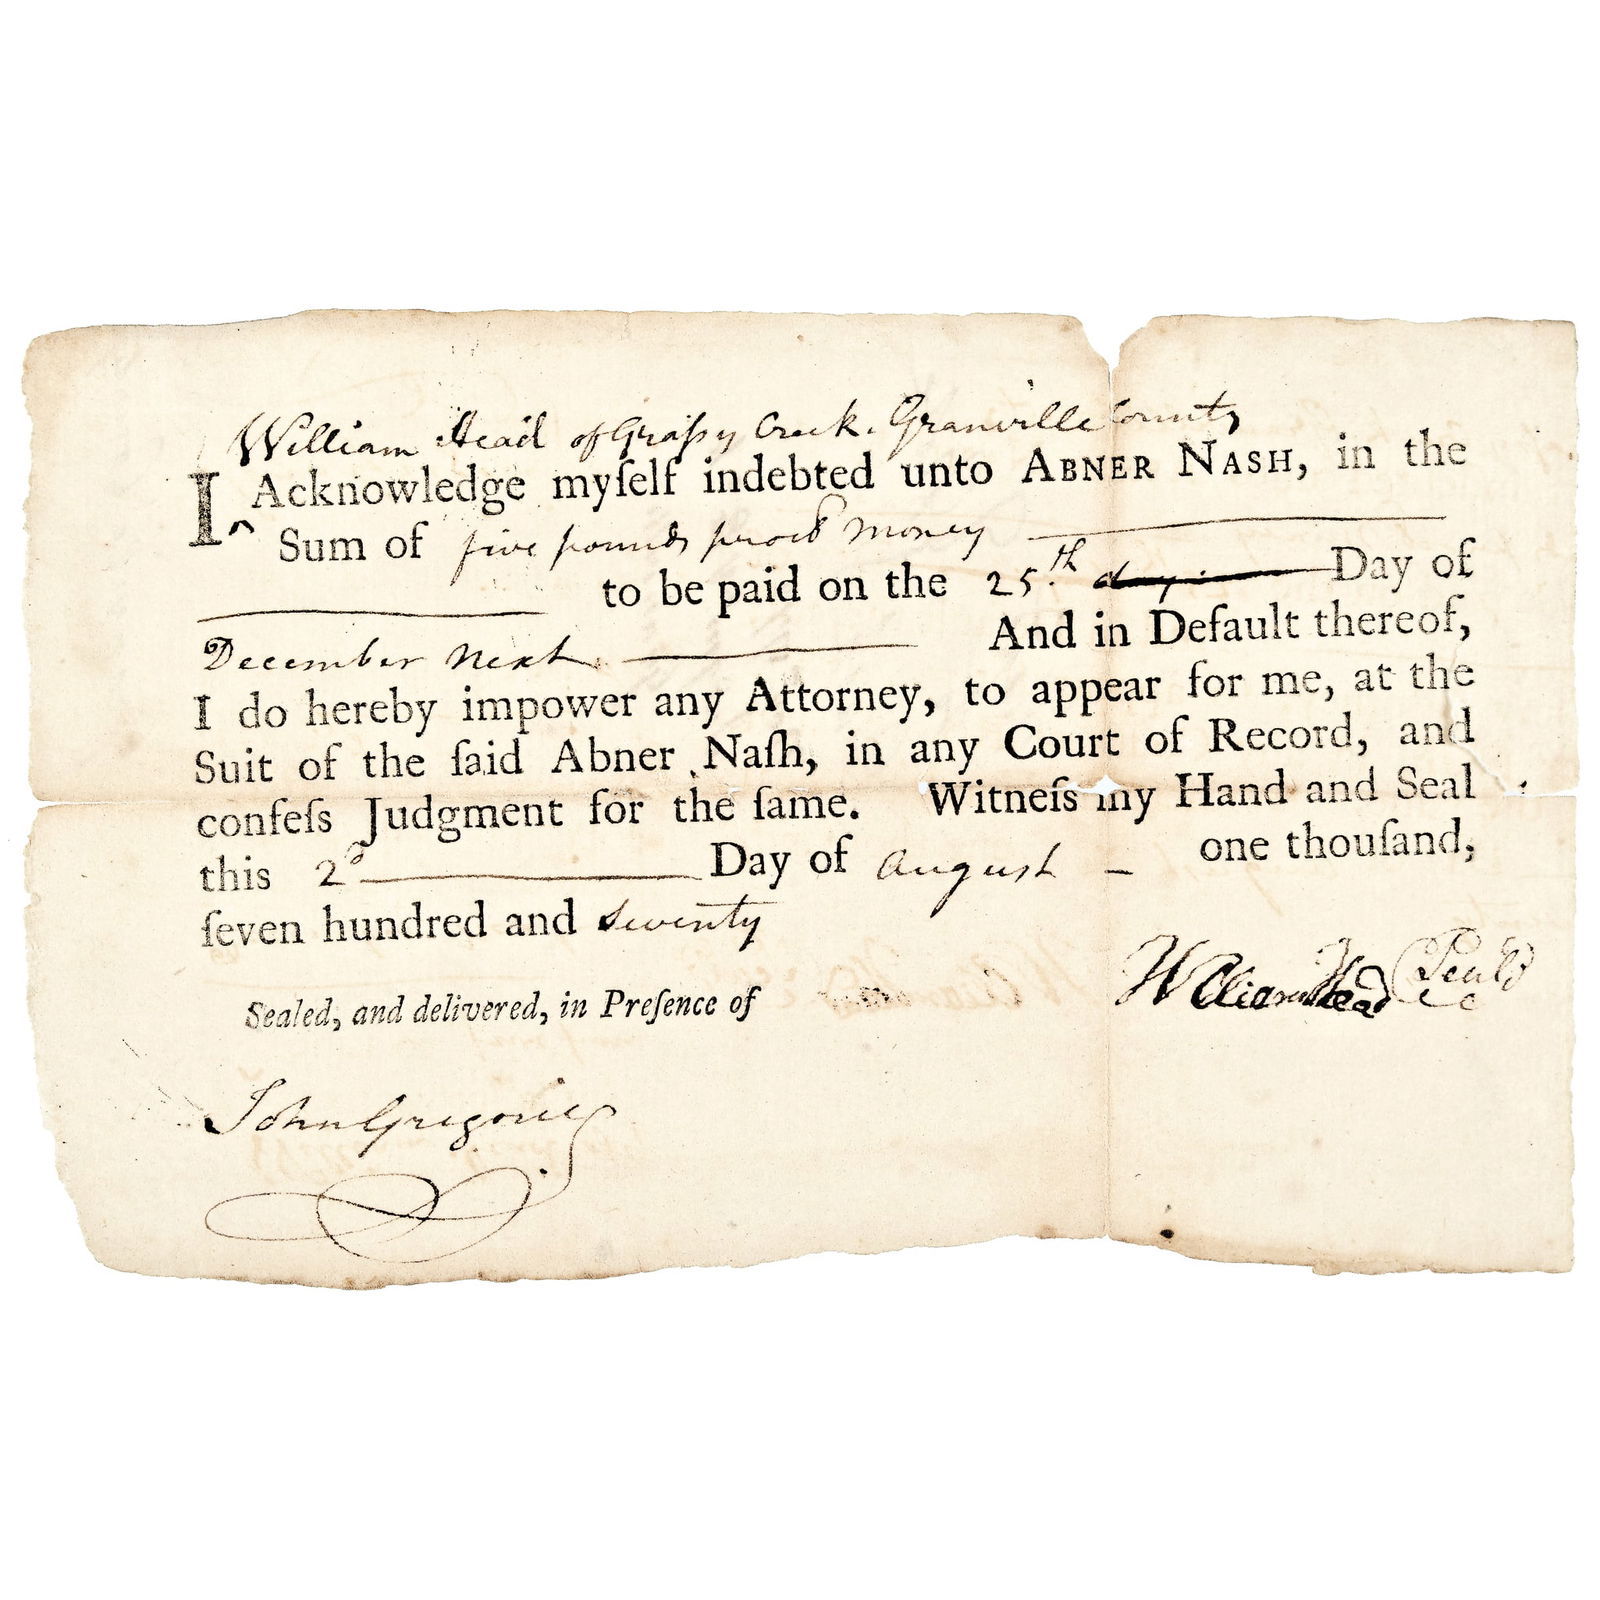 William Head of Graſsy Creek. Granville County
I ^ Acknowledge myſelf indebted unto ABNER NASH, in the
Sum of five pounds procl money
to be paid on the 25.th day Day of
December next And in Default thereof,
I do hereby impower any Attorney, to appear for me, at the
Suit of the ſaid Abner Naſh, in any Court of Record, and
confeſs Judgment for the ſame. Witneſs my Hand and Seal
this 2d Day of August one thouſand,
ſeven hundred and Seventy
William Head (Seal)
Sealed, and delivered, in Preſence of
John Gregorie